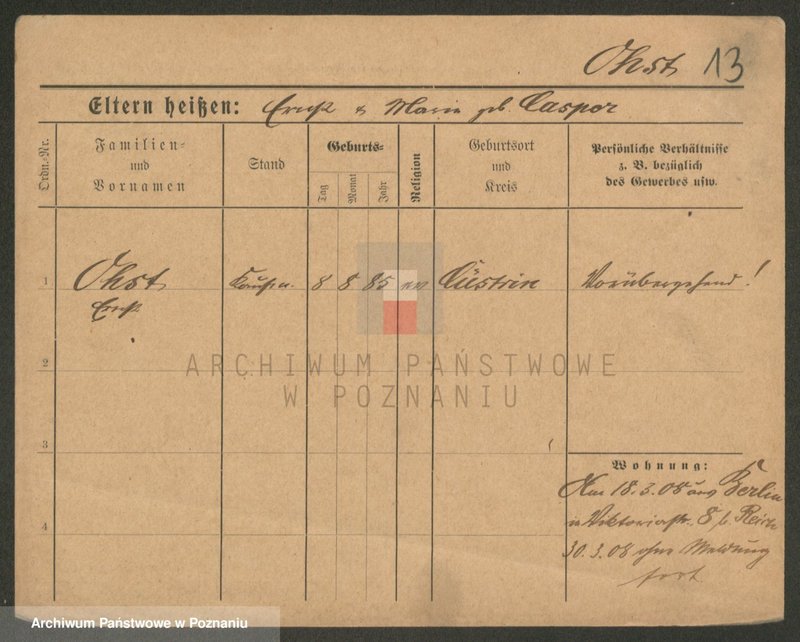 Ohst 13
Eltern heißen: Ernst u Marie geb. Casper
Ordn.-Nr.
Familien- und Vornamen
Stand
Geburts-
Tag
Monat
Jahr
Religion
Geburtsort und Kreis
Persönliche Verhältnisse
z. B. bezüglich
des Gewerbes usw.
1 Ohst Kaufm. 8 8 85 Cüstrin Vorübergehend!
Ernst
2
ARCHIWUM PAŃSTWOWE
W POZNANIU
3
Wohnung:
Am 18.3.08 aus Berlin
in Viktoriastr. 8 b. Reich
4
30.3.08 ohne Meldung
fort
Archiwum Państwowe w Poznaniu